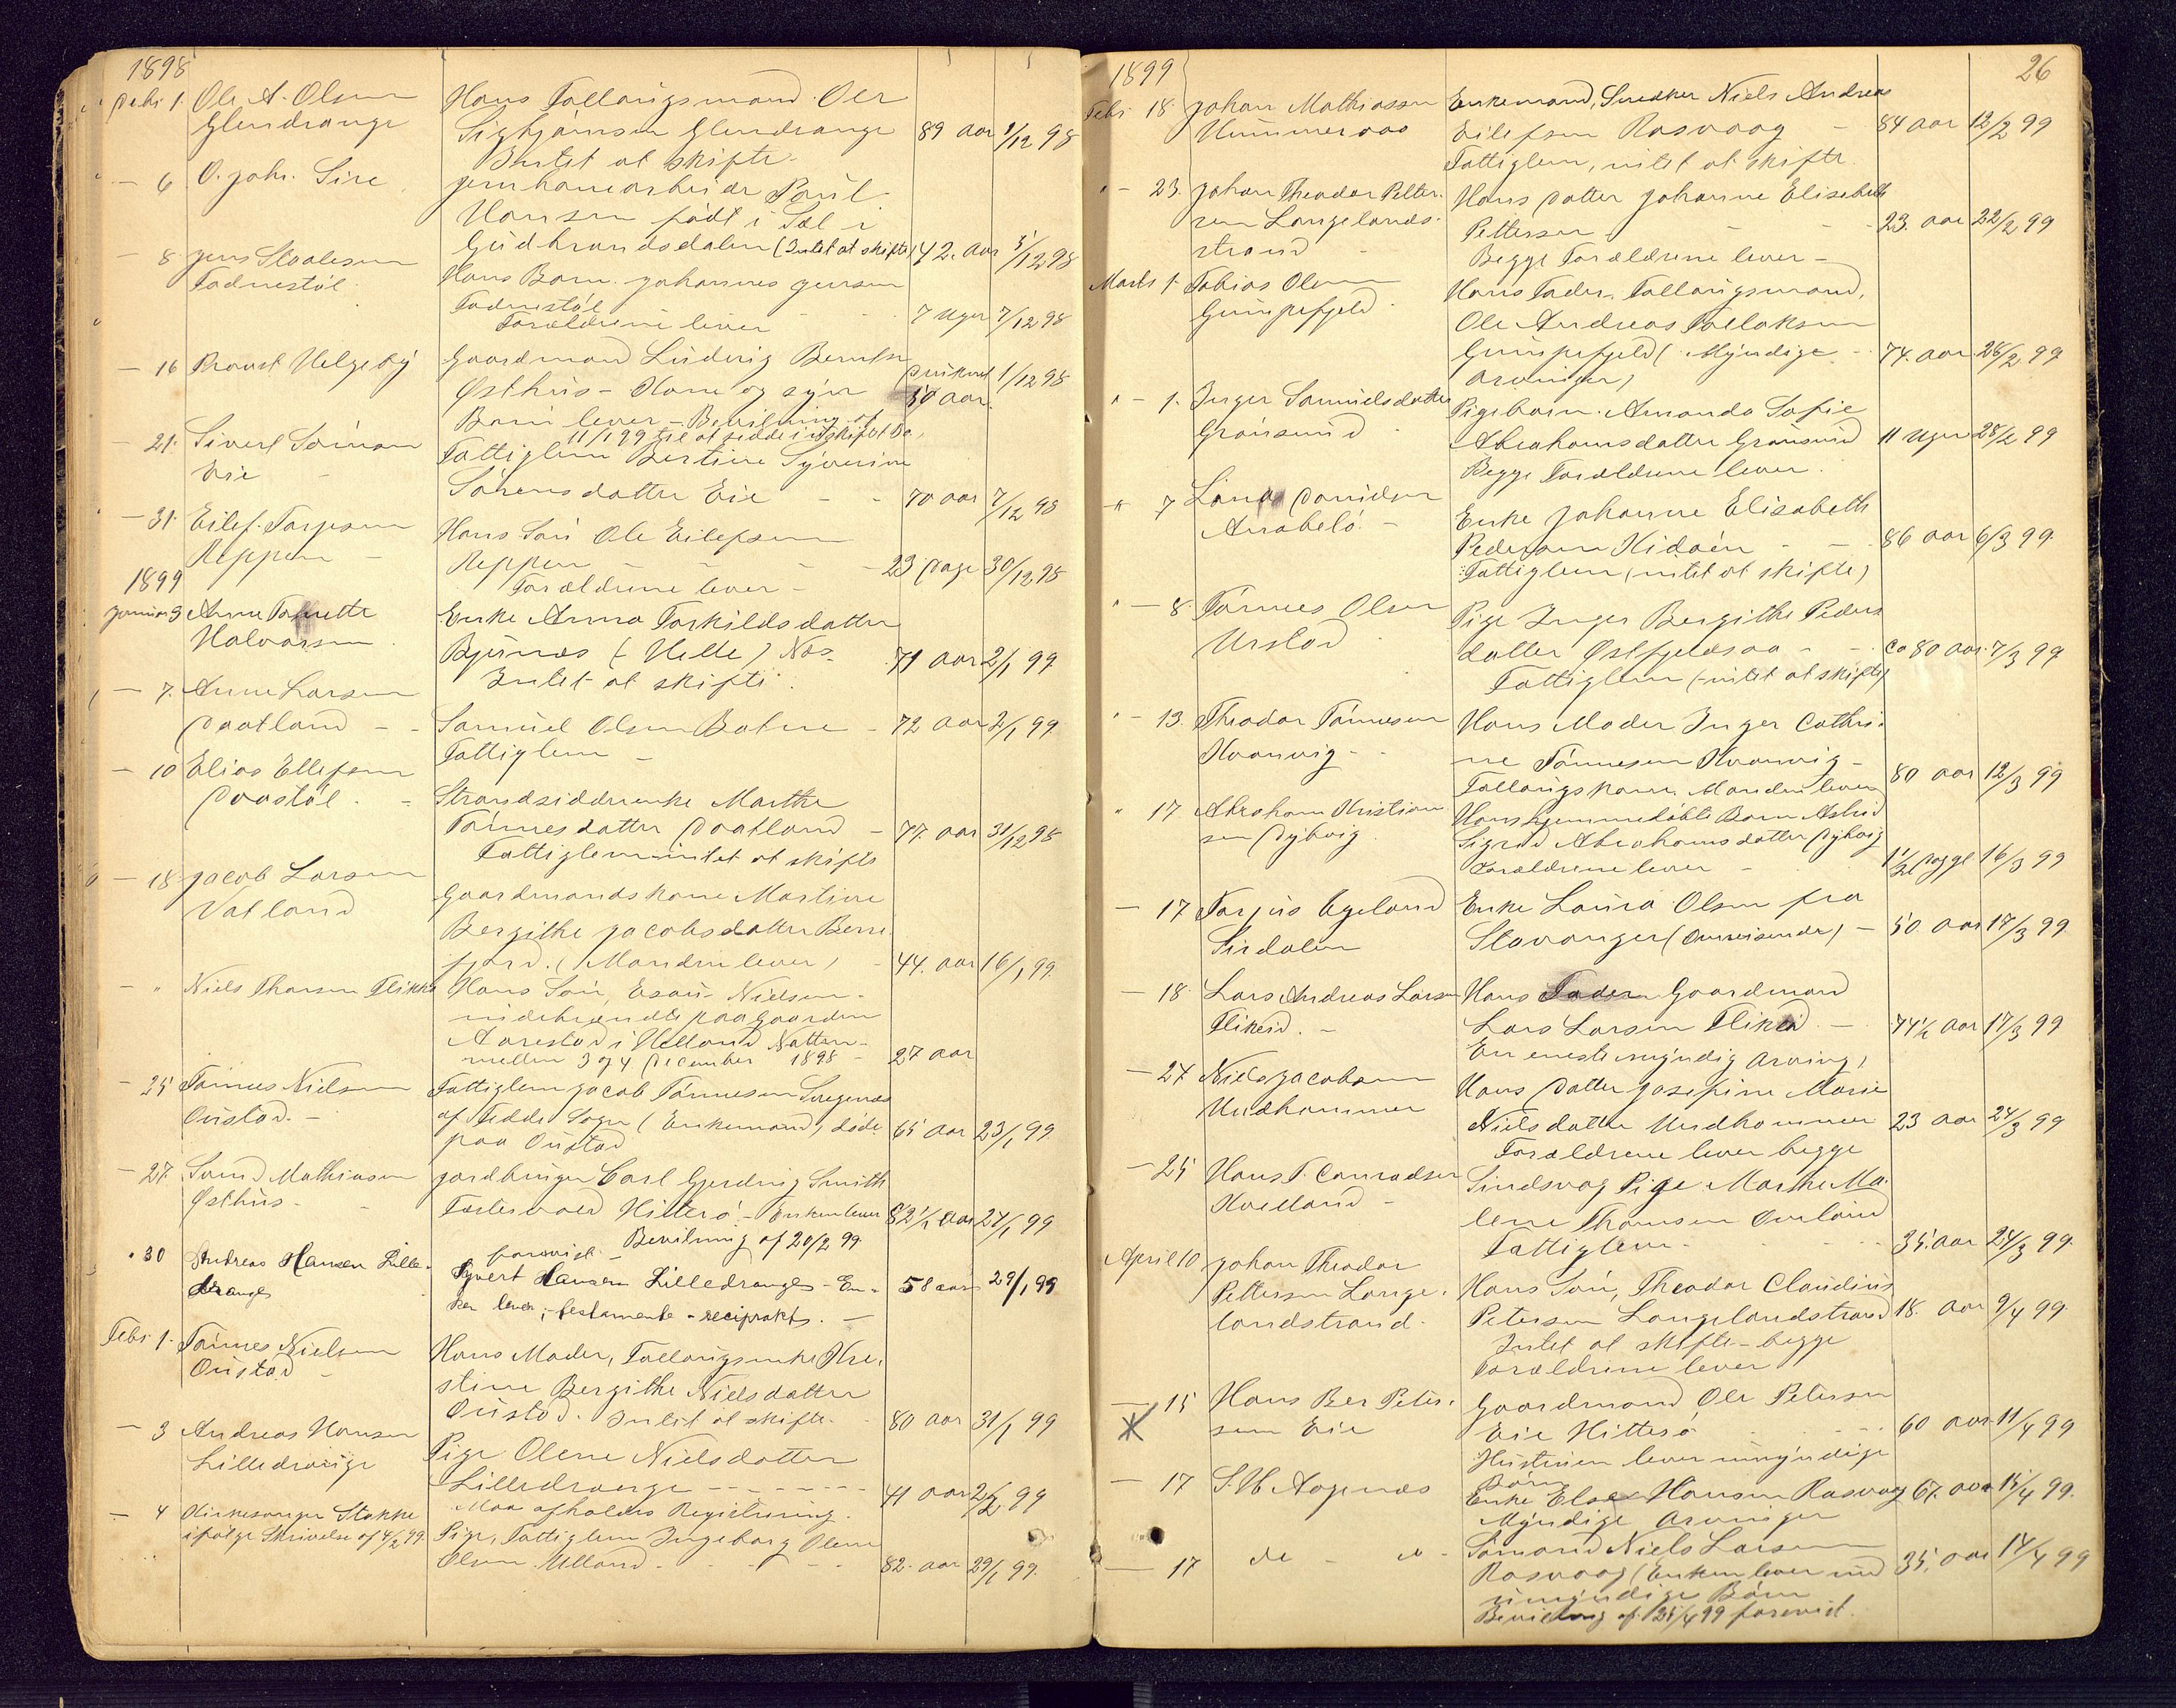 1898
Decbr 1. Ole A. Olsen Hans Follaugsmand Ole
Glendrange Sigbjørnsen Glendrange 89 aar 1/12 98
Intet at skifte.
— 6 O. Johs. Sire Jernbanearbeider Paul
Hansen født i Sel i
Gudbrandsdalen (Intet at skifte) 42. aar 5/12 98
— 8 Jens Staalesen Hans Barn Johannes Jensen
Fadnestøl
Fadnestøl 7 Uger 7/12 98
Forældrene lever
— 16 Provst Helgeby Gaardmand Ludvig Berntsen druknet
Østhus - Kone og syv 50 aar. 1/12 98
Børn lever - Bevilning af
11/1 99 til at sidde i uskiftet Bo.
— 21. Sivert Sørensen Fattiglem Bertine Syverine
Eie Sørensdatter Eie 70 aar 7/12 98
— 31. Eilef Tarjesen Hans Søn Ole Eilefsen
Reppen Reppen 23 Dage 30/12 98
Forældrene lever
1899
Januar 3 Anne Tonette Enke Anna Torkildsdatter
Halvorsen Bjunes (Helle) Næs 71 aar 2/1 99.
Intet at skifte.
— 7. Anne Larsen
Daatland Samuel Olsen Botne 72 aar 2/1 99
Fattiglem
— 10 Elias Ellefsen
Daastøl Strandsidderenke Marthe
Tønnesdatter Daatland 77. aar 31/12 98
Fattiglem intet at skifte
— 18 Jacob Larsen Gaardmandskone Martine
Vatland Bergithe Jacobsdatter Berre
fjord. (Manden lever) 44. aar 16/1 99.
— " Niels Thorsen Flikke Hans Søn, Esau Nielsen
indebrændt paa Gaarden
Aarestad i Helland Natten
mellem 3 og 4 December 1898 27 aar
— 25 Tønnes Nielsen Fattiglem Jacob Tønnesen
Oustad. af Fedde Sogn (Enkemand) døde 65 aar 23/1 99
paa Oustad
— 27. Svend Mathiasen Jordbruger Carl Gjerdrug Smith
Østhus Hitterø - Enken lever 82 1/2 aar 24/1 99
Bevilning af 20/2 99
forevist
" 30 Andreas Hansen Lille- Syvert Hansen Lilledrange - En- 58 aar 29/1 99
drange ken lever, testamente - reciprokt.
Febr. 1. Tønnes Nielsen Hans Moder, Follaugsenke Kri-
Oustad stine Bergithe Nielsdatter
Oustad. Intet at skifte. 80 aar 31/1 99
— 3 Andreas Hansen Pige Olene Nielsdatter
Lilledrange Lilledrange 41 aar 2/2 99
Maa afholdes Registrering.
— 4 Kirkesanger Stakke Pige, Fattiglem Ingeborg Olene
ifølge Skrivelse af 4/2 99. Olsen Ulland. 82. aar 29/1 99.
1899 26
Febr. 18. Johan Mathiassen Enkemand, Snedker Niels Andreas
Hummeraas Eilefsen Rasvaag 84 aar 12/2 99
Fattiglem, intet at skifte.
" — 23. Johan Theodor Petter- Hans Datter Johanne Elisabeth
sen Langelands- Pettersen 23. aar 22/2 99
strand Begge Forældrene lever
Marts 1. Tobias Olsen Hans Fader, Follaugsmand,
Gumpefjeld Ole Andreas Tollaksen
Gumpefjeld (Myndige 74. aar 26/2 99
Arvinger)
" — 1. Inger Samuelsdatter Pigebarn Amanda Sofie
Grønsund Abrahamsdatter Grønsund 11 Uger 28/2 99
Begge Forældrene lever.
" 7 Danielsen Enke Johanne Elisabeth
Anabelø Pedersen Kidøen 86 aar 6/3 99.
Fattiglem (intet at skifte)
" — 8. Tønnes Olsen Pige Inger Bergithe Peders
Urstad datter Østfjeldsaa Ca 80 aar 7/3 99
Fattiglem (intet at skifte)
" — 13. Theodor Tønnesen Hans Moder Inger Cathri-
Kvanvig ne Tønnesen Kvanvig 80 aar 12/3 99
Follaugskone. Manden lever
" 17 Abraham Kristian- Hans hjemmedøbte Barn Astrid
sen Dybvig Sigrid Abrahamsdatter Dybvig
Forældrene lever 1 1/2 16/3 99
— 17 Tarjus Egeland Enke Laura Olsen fra
Sirdalen Stavanger (Omreisende) 50 aar 17/3 99
— 18 Lars Andreas Larsen Hans Fader Gaardmand
Flikeid. Lars Larsen Flikeid 74 1/2 aar 17/3 99
En eneste myndig Arving,
— 27 Niels Jacobsen Hans Datter Josefine Marie
Undhammer Nielsdatter Undhammer 23 aar 24/3 99
Forældrene lever begge
— 25 Hans T. Conradsen Sindsvag Pige Marthe Ma-
Kvelland lene Thomsen Ouland
Fattiglem 35. aar 24/3 99.
April 10 Johan Theodor Hans Søn, Theodor Claudius
Pettersen Lange- Petersen Langelandstrand 18. aar 9/4 99
landstrand Intet at skifte - begge
Forældrene lever
— 15 Hans Ber Peter- Gaardmand Ole Petersen
sen Eie Eie Hitterø 60 aar 11/4 99
Hustruen lever umyndige
Børn
— 17 S. H. Aagenæs Enke Else Hansen Rasvaag 67. aar 15/4 99.
Myndige Arvinger
— 17 do - do - Sømand Niels Larsen
Rasvaag (Enken lever med 35. aar 14/4 99
umyndige Børn
Bevilling af 25/4 99 forevist.